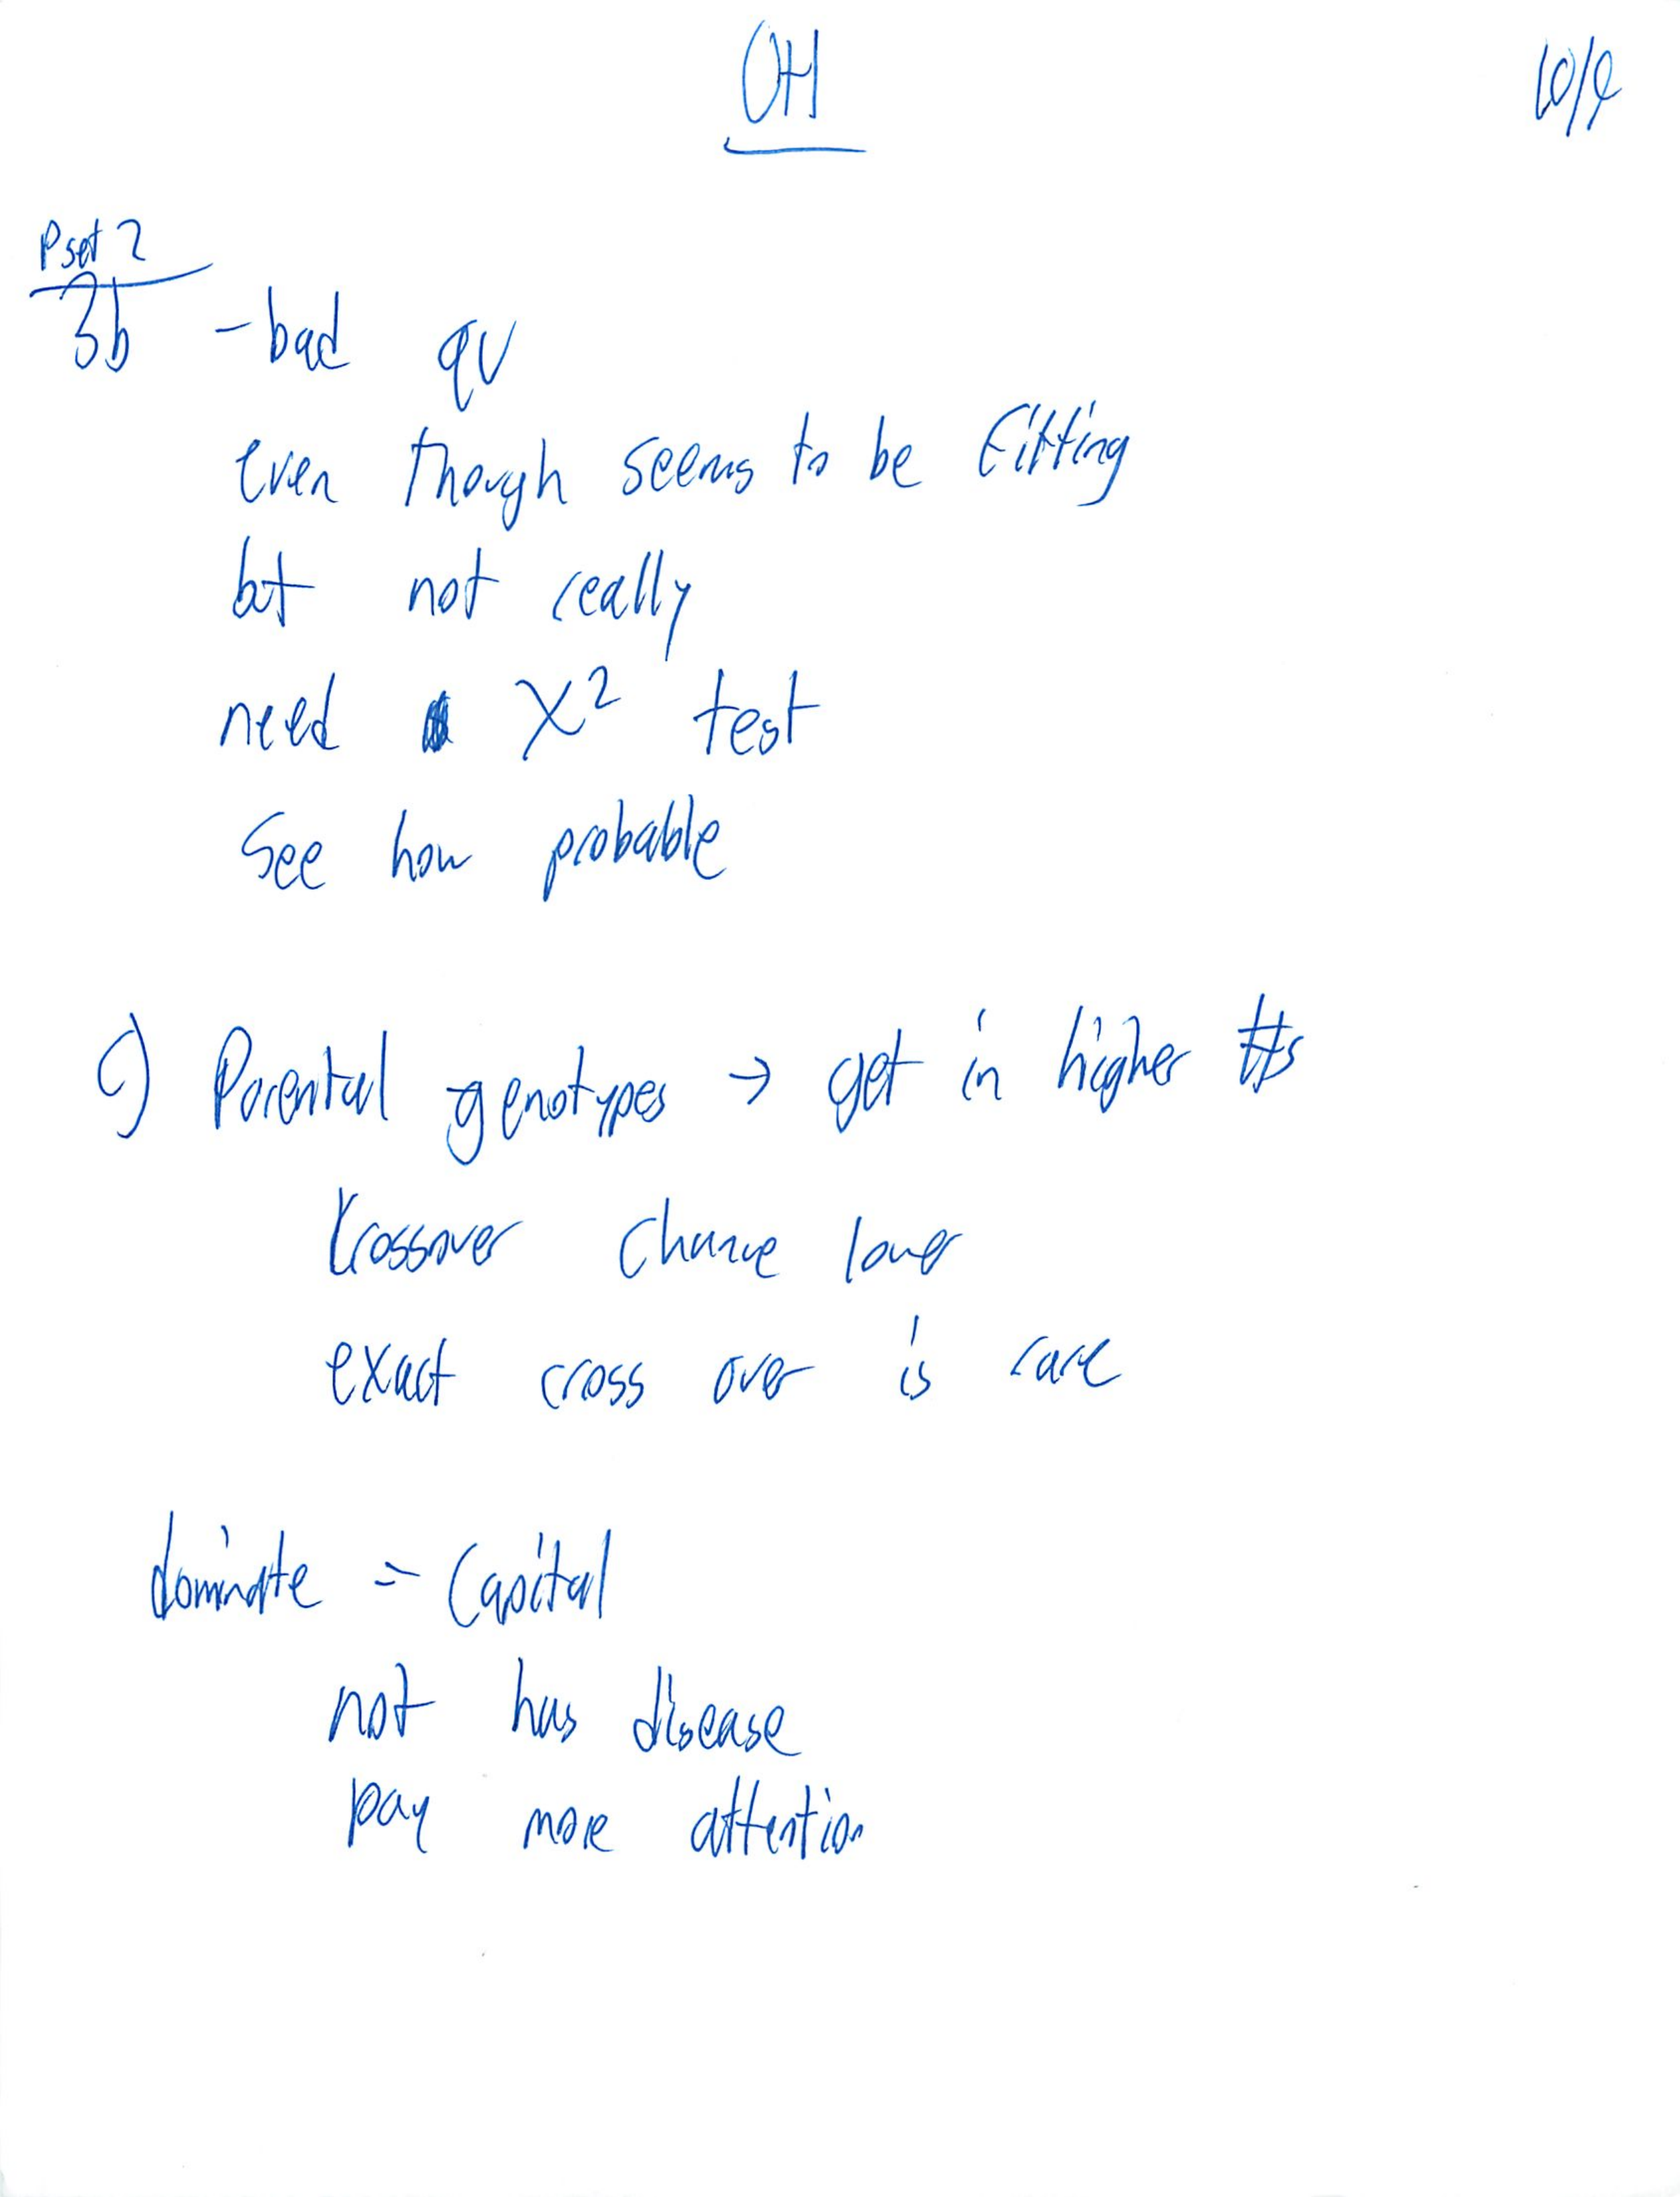 OH
10/9
Pset 2
3b - bad qu
even though seems to be fitting
but not really
need χ² test
See how probable
c) Parental genotypes → get in higher #s
Crossover chance lower
exact cross over is rare
dominate = Capital
not has disease
pay more attention